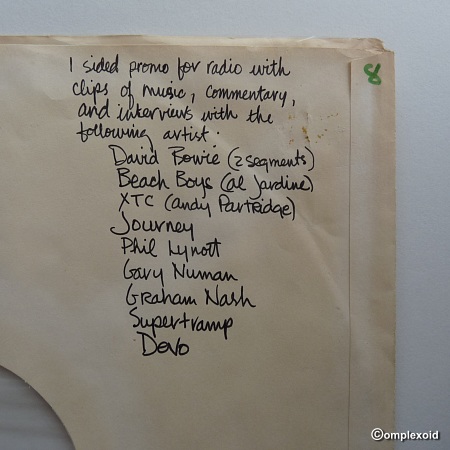 1 sided promo for radio with
clips of music, commentary,
and interviews with the
following artist:
David Bowie (2 segments)
Beach Boys (al Jardine)
XTC (andy Partridge)
Journey
Phil Lynott
Gary Numan
Graham Nash
Supertramp
Devo
8
©omplexoid